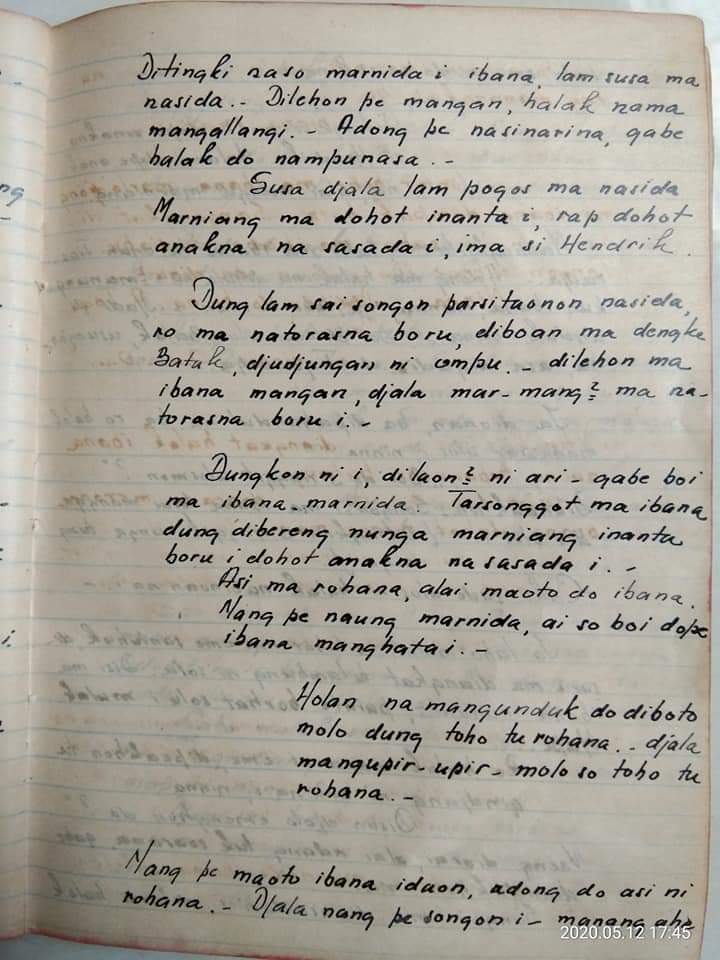 Ditingki naso marnida i ibana, lam susa ma
nasida.- Dilehon pe mangan, halak nama
mangallangi.- Adong pe nasinarina, gabe
halak do nampunasa.-
Susa djala lam pogos ma nasida
Marniang ma dohot inanta i, rap dohot
anakna na sasada i, ima si Hendrik.
Dung lam sai songon parsitaonon nasida,
ro ma natorasna boru, diboan ma dengke
Batak, djudjungan ni ompu.- dilehon ma
ibana mangan, djala mar-mang² ma na-
torasna boru i.-
Dungkon ni i, di laon² ni ari- gabe boi
ma ibana marnida. Tarsonggot ma ibana
dung dibereng nunga marniang inanta
boru i dohot anakna na sasada i.-
Asi ma rohana, alai maoto do ibana.
Nang pe naung marnida, ai so boi dope
ibana manghatai.-
Holan na mangunduk do diboto
molo dung toho tu rohana.- djala
mangupir-upir- molo so toho tu
rohana.-
Nang pe maoto ibana idaon, adong do asi ni
rohana.- Djala nang pe songon i- manang aha
2020.05.12 17:45